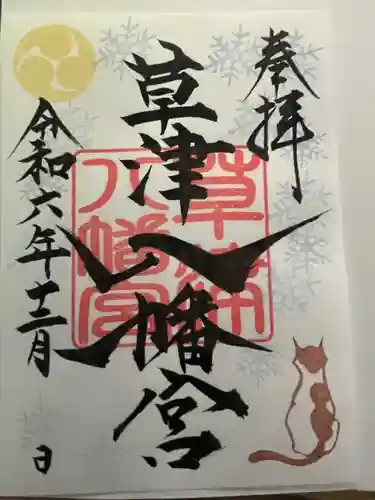 奉拝
草津八幡宮
令和六年十二月 日
草津
八幡宮